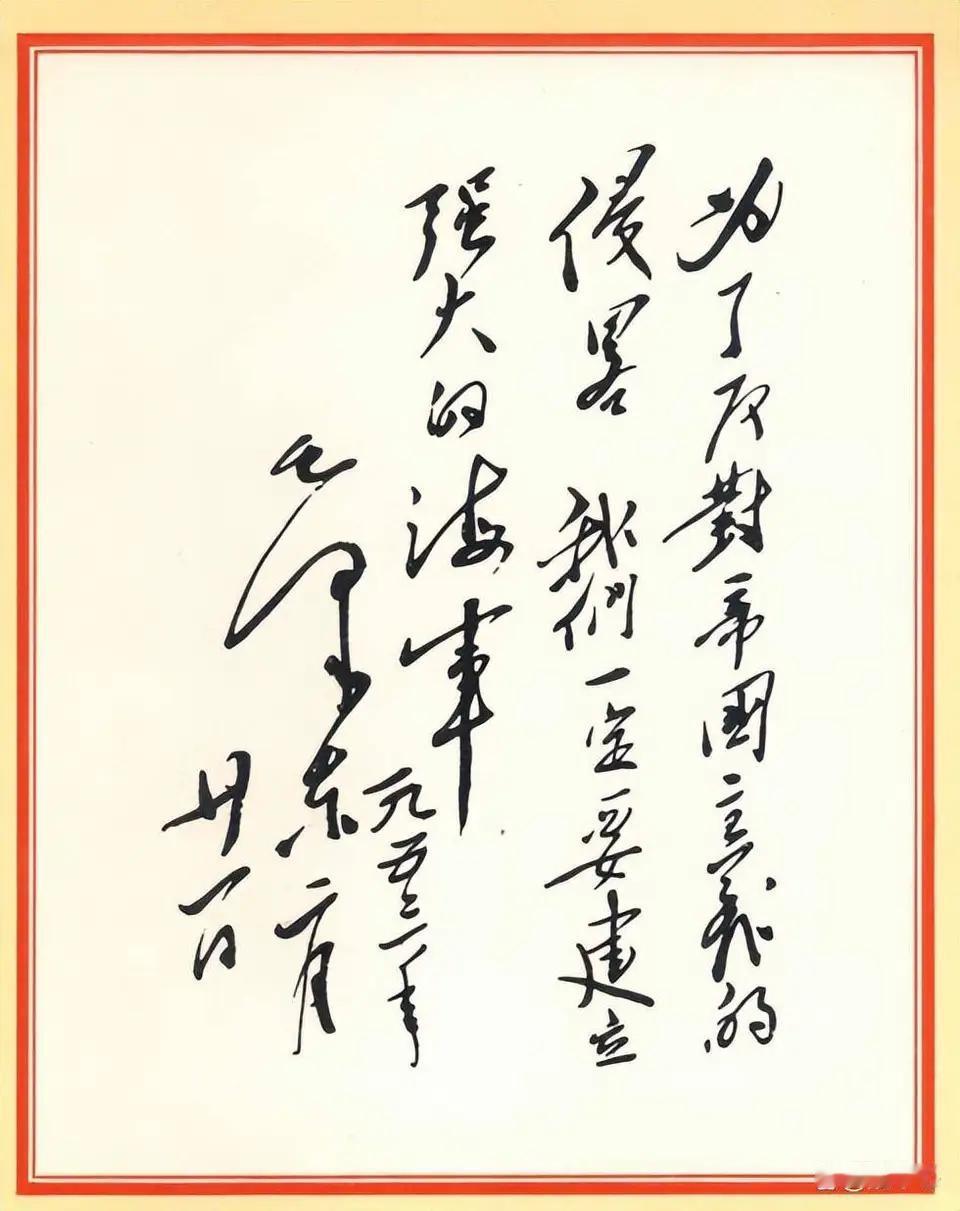 为了反對帝國主義的
侵畧 我們一定要建立
强大的海軍
一九五三年
毛泽东 二月
廿一日